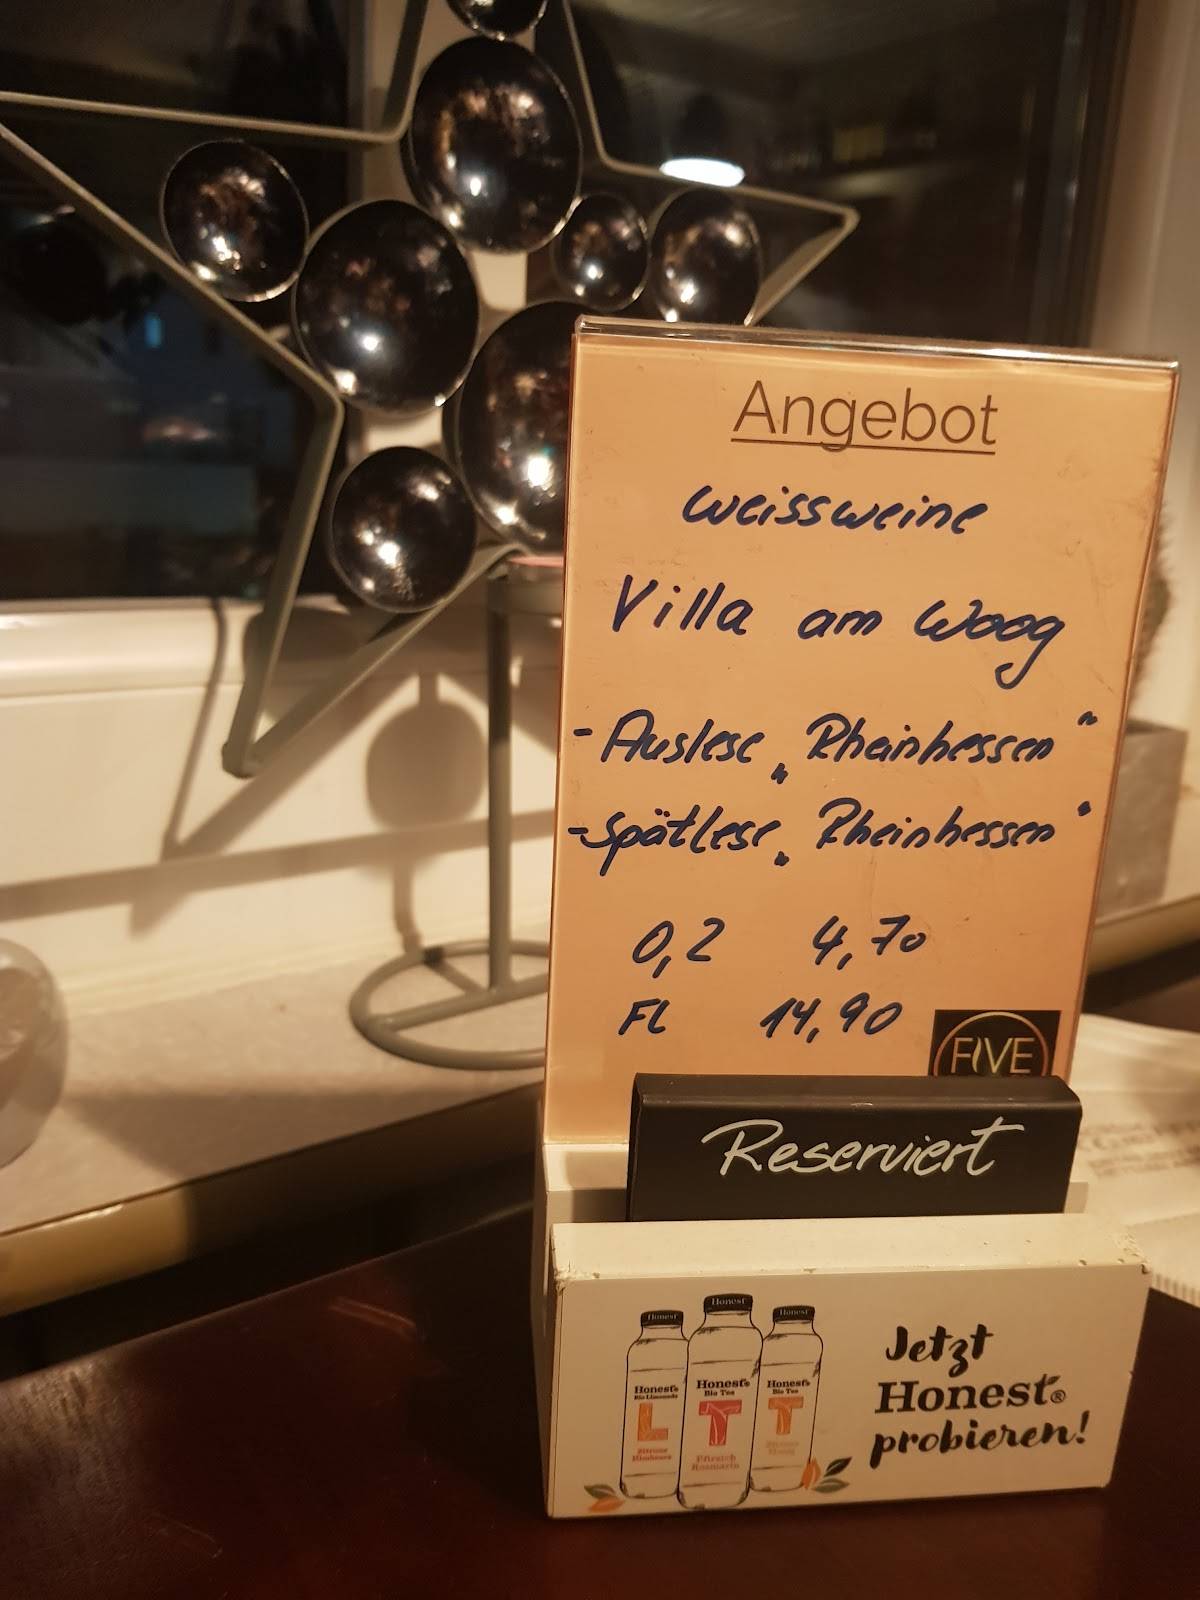 Angebot
Weissweine
Villa am Woog
- Auslese „Rheinhessen“
- Spätlese „Rheinhessen“
0,2 4,70
FL 14,90
FIVE
Reserviert
Honest
Honest
Honest
Honest®
Bio Limonade
L
Zitrone
Himbeere
Honest®
Bio Tea
T
Pfirsich
Rosmarin
Honest®
Bio Tea
T
Zitrone
Honig
Jetzt
Honest®
probieren!